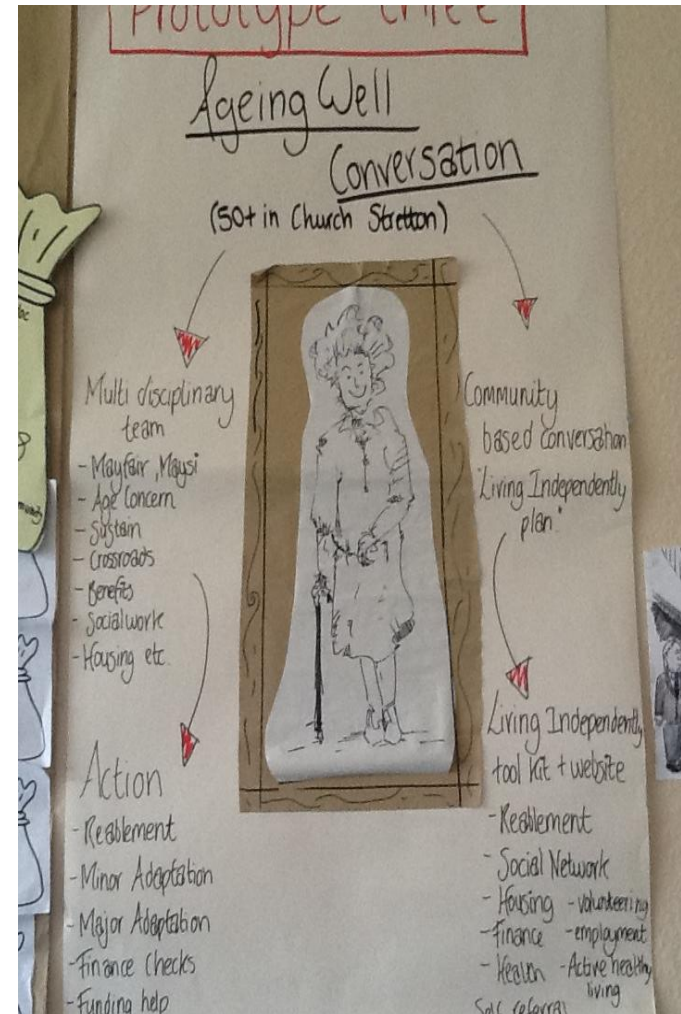 Prototype three
Ageing Well
Conversation
(50+ in Church Stretton)
Multi disciplinary
team
- Mayfair, Maysi
- Age Concern
- Sustain
- Crossroads
- Benefits
- Socialwork
- Housing etc.
Action
- Reablement
- Minor Adaptation
- Major Adaptation
- Finance Checks
- Funding help
Community
based conversation
"Living Independently
plan."
Living Independently
tool kit + website
- Reablement
- Social Network
- Housing - volunteering
- Finance - employment
- Health - Active healthy
living
Self referral